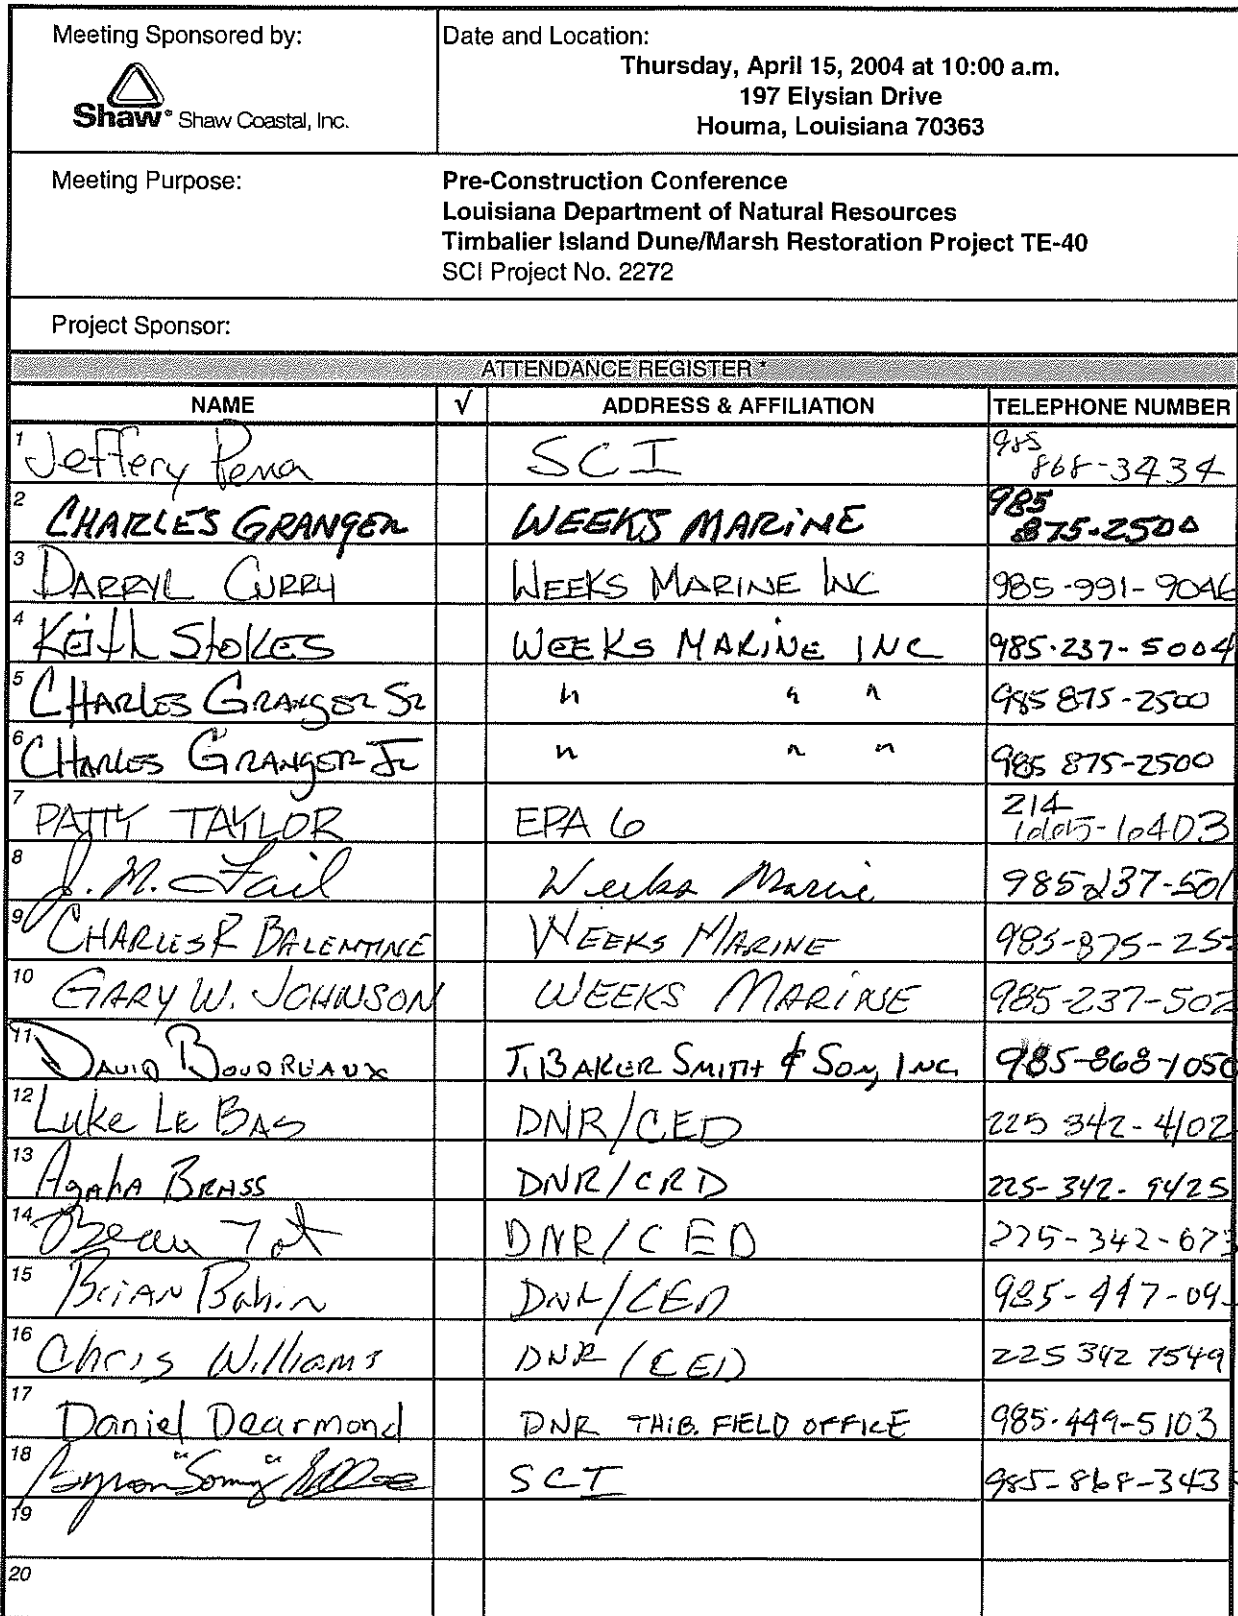 Meeting Sponsored by:
Shaw® Shaw Coastal, Inc.
Date and Location:
Thursday, April 15, 2004 at 10:00 a.m.
197 Elysian Drive
Houma, Louisiana 70363
Meeting Purpose:
Pre-Construction Conference
Louisiana Department of Natural Resources
Timbalier Island Dune/Marsh Restoration Project TE-40
SCI Project No. 2272
Project Sponsor:
ATTENDANCE REGISTER *
NAME √ ADDRESS & AFFILIATION TELEPHONE NUMBER
1 Jeffery Pena SCI 985 868-3434
2 CHARLES GRANGER WEEKS MARINE 985 875-2500
3 DARRYL CURRY WEEKS MARINE INC 985-991-9046
4 Keith Stokes WEEKS MARINE INC 985-237-5004
5 CHARLES GRANGER SR " " " 985 875-2500
6 CHARLES GRANGER JR " " " 985 875-2500
7 PATTY TAYLOR EPA 6 214 665-6403
8 J. M. Fail Weeks Marine 985 237-501
9 CHARLES R BALENTINE WEEKS MARINE 985-875-252
10 GARY W. JOHNSON WEEKS MARINE 985-237-502
11 DAVID BOUDREAUX T. BAKER SMITH & SON, INC. 985-868-1050
12 Luke LE BAS DNR/CED 225 342-4102
13 Agaha BRASS DNR/CRD 225-342-9425
14 Beau DNR/CED 225-342-673
15 BriAN Babin DNR/CED 985-447-09
16 Chris Williams DNR/CED 225 342 7549
17 Daniel Dearmond DNR THIB. FIELD OFFICE 985-449-5103
18 Byron "Sonny" SCI 985-868-343
19
20